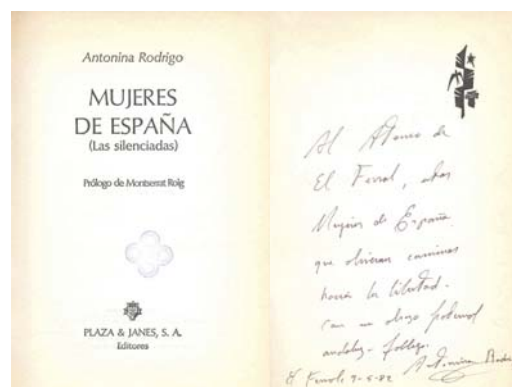 Antonina Rodrigo
MUJERES
DE ESPAÑA
(Las silenciadas)
Prólogo de Montserrat Roig
PLAZA & JANES, S. A.
Editores
Al Ateneo de
El Ferrol, estas
Mujeres de España
que abrieron caminos
hacia la libertad.
Con un abrazo fraternal
andaluz-gallego.
Antonina Rodrigo
El Ferrol, 7-5-82